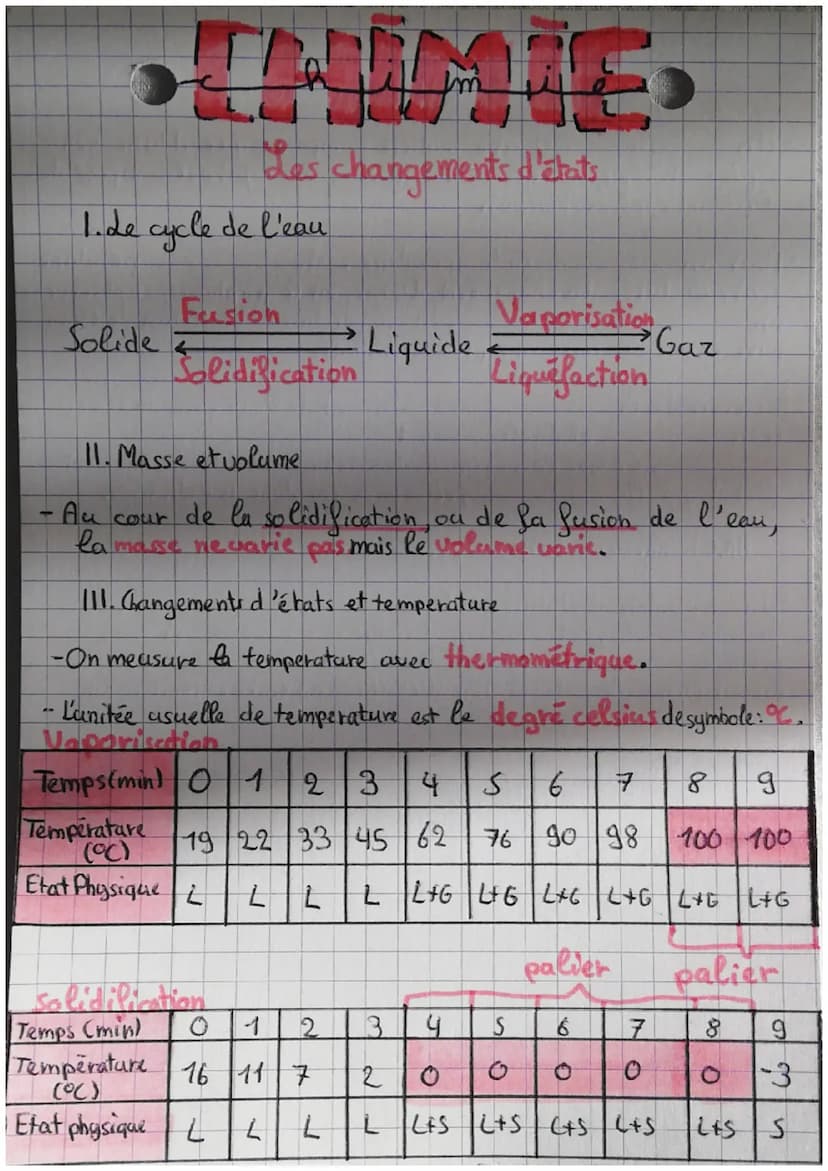 CHIMIE
chimie
Les changements d'états
I. Le cycle de l'eau
Fusion Vaporisation
Solide Liquide Gaz
Solidification Liquéfaction
II. Masse et volume
- Au cour de la solidification, ou de la fusion de l'eau,
la masse ne varie pas mais le volume varie.
III. Changements d'états et temperature
- On measure la temperature avec thermométrique.
- L'unitée usuelle de temperature est le degré celsius de symbole: °C.
Vaporisation
Temps (min) 0 1 2 3 4 5 6 7 8 9
Température (°C) 19 22 33 45 62 76 90 98 100 100
Etat Physique L L L L L+G L+G L+G L+G L+G L+G
palier palier
Solidification
Temps (min) 0 1 2 3 4 5 6 7 8 9
Température (°C) 16 11 7 2 0 0 0 0 0 -3
Etat physique L L L L L+S L+S L+S L+S L+S S